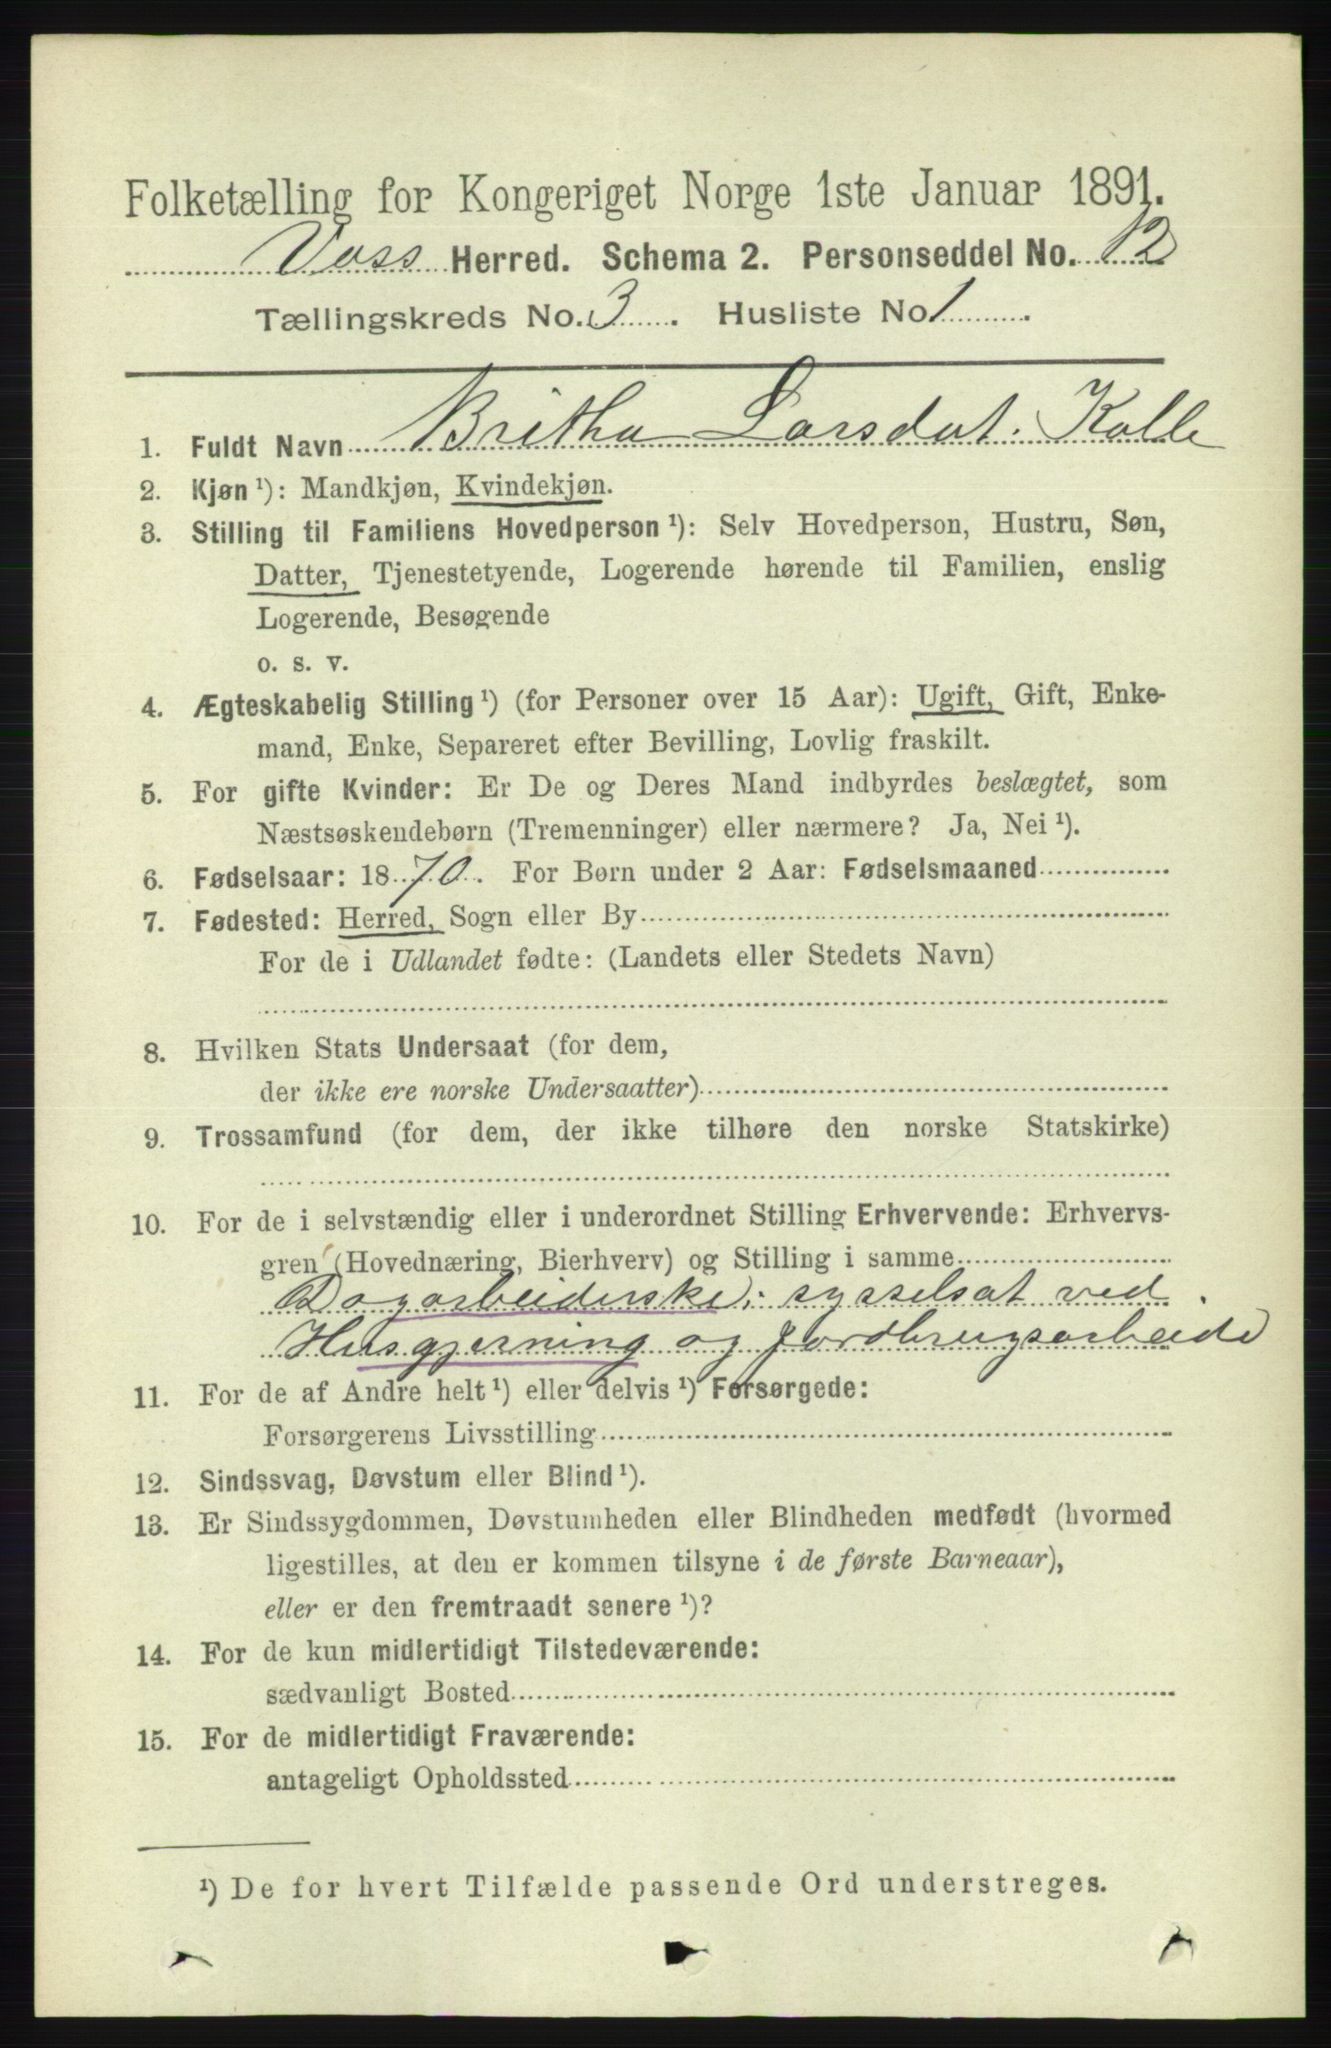 Folketælling for Kongeriget Norge 1ste Januar 1891.
Voss Herred. Schema 2. Personseddel No. 12
Tællingskreds No. 3. Husliste No 1.
1. Fuldt Navn Britha Larsdat. Kolle
2. Kjøn ¹): Mandkjøn, Kvindekjøn.
3. Stilling til Familiens Hovedperson ¹): Selv Hovedperson, Hustru, Søn,
Datter, Tjenestetyende, Logerende hørende til Familien, enslig
Logerende, Besøgende
o. s. v.
4. Ægteskabelig Stilling ¹) (for Personer over 15 Aar): Ugift, Gift, Enke-
mand, Enke, Separeret efter Bevilling, Lovlig fraskilt.
5. For gifte Kvinder: Er De og Deres Mand indbyrdes beslægtet, som
Næstsøskendebørn (Tremenninger) eller nærmere? Ja, Nei ¹).
6. Fødselsaar: 1870. For Børn under 2 Aar: Fødselsmaaned
7. Fødested: Herred, Sogn eller By
For de i Udlandet fødte: (Landets eller Stedets Navn)
8. Hvilken Stats Undersaat (for dem,
der ikke ere norske Undersaatter)
9. Trossamfund (for dem, der ikke tilhøre den norske Statskirke)
10. For de i selvstændig eller i underordnet Stilling Erhvervende: Erhvervs-
gren (Hovednæring, Bierhverv) og Stilling i samme
Dagarbeiderske; sysselsat ved
Husgjerning og Jordbrugsarbeide
11. For de af Andre helt ¹) eller delvis ¹) Forsørgede:
Forsørgerens Livsstilling
12. Sindssvag, Døvstum eller Blind ¹).
13. Er Sindssygdommen, Døvstumheden eller Blindheden medfødt (hvormed
ligestilles, at den er kommen tilsyne i de første Barneaar),
eller er den fremtraadt senere ¹)?
14. For de kun midlertidigt Tilstedeværende:
sædvanligt Bosted
15. For de midlertidigt Fraværende:
antageligt Opholdssted
¹) De for hvert Tilfælde passende Ord understreges.